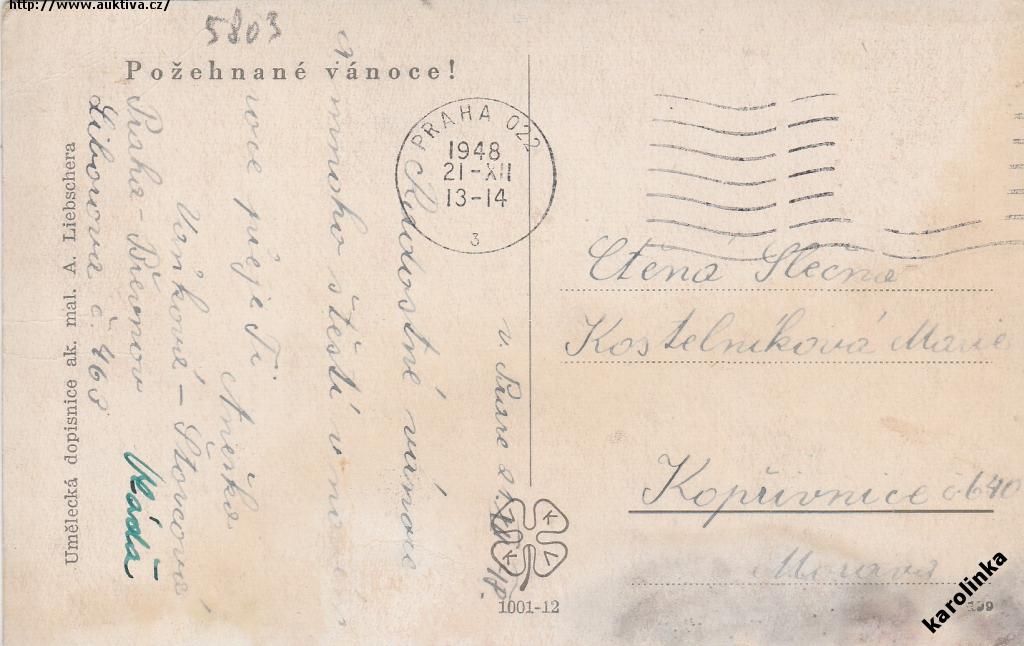 http://www.auktiva.cz/
5803
Požehnané vánoce!
PRAHA 022
1948
21-XII
13-14
3
v Praze 21.XII.48.
Radostné vánoce
mnoho štěstí v novém
roce přeje Ti
Anežka
Praha - Břevnov
Liborova č. 463
Umělecká dopisnice ak. mal. A. Liebschera
Ctěná Slečna
Kostelníková Marie
Kopřivnice č. 640
Morava
K K V
1001-12
199
karolinka